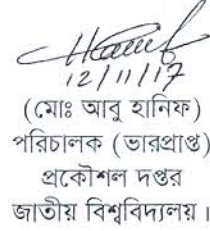 12/11/17
(মোঃ আবু হানিফ)
পরিচালক (ভারপ্রাপ্ত)
প্রকৌশল দপ্তর
জাতীয় বিশ্ববিদ্যালয়।